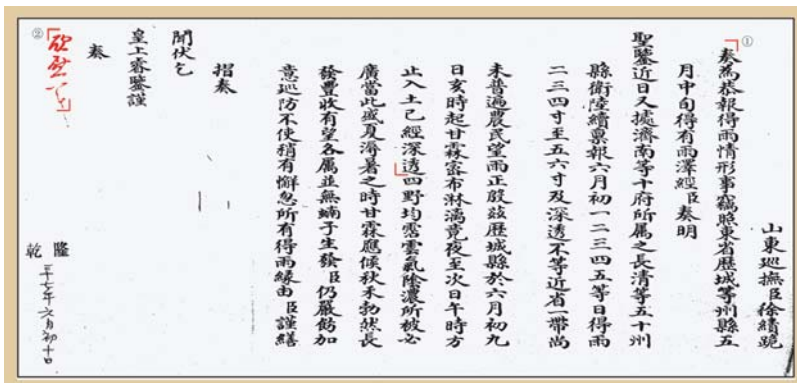 山東巡撫臣徐績跪
①
奏為恭報得雨情形事竊照東省歷城等州縣五
月中旬得有雨澤經臣奏明
聖鑒近日又據濟南等十府所屬之長清等五十州
縣衛陸續稟報六月初一二三四五等日得雨
二三四寸至五六寸及深透不等近省一帶尚
未普遍農民望雨正殷茲歷城縣於六月初九
日亥時起甘霖密布淋漓竟夜至次日午時方
止入土已經深透四野均霑雲氣陰濃所被必
廣當此盛夏溽暑之時甘霖應候秋禾勃然長
發豐收有望各屬並無蝻子生發臣仍嚴飭加
意巡防不使稍有懈忽所有得雨緣由臣謹繕
摺奏
聞伏乞
皇上睿鑒謹
奏
②
欣慰
乾隆
三十七年六月初十日